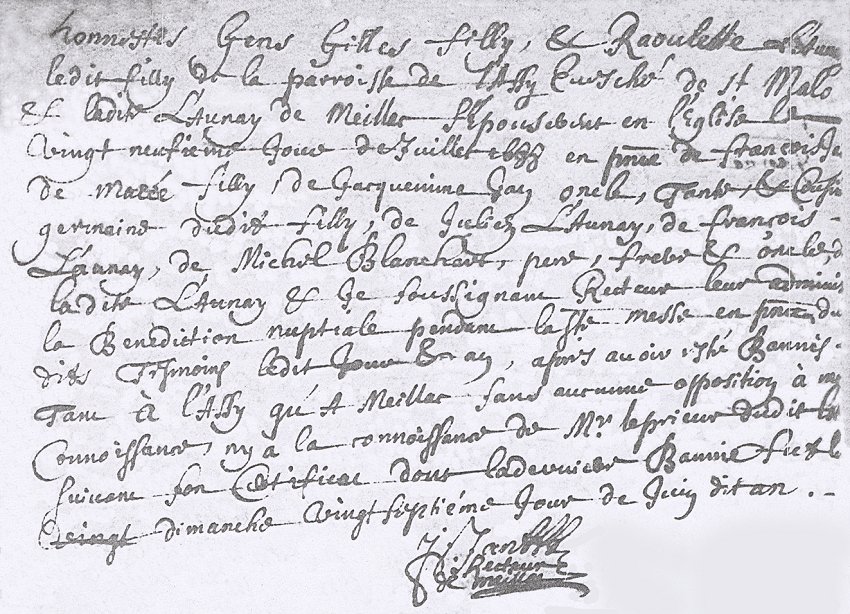 honnestes Gens Gilles filly, & Raoulette
ledit filly de la parroisse de l'Assy Euesché de St Malo
& ladite L'Aunay de Meillac s'Epouserent en l'Eglise le
Vingt neufieme Jour de Juillet en pnce de françois
de Macée filly, de Jacquemine oncle, Tante, & Cousi
germaine dudit filly, de Julien L'Aunay, de françois
L'aunay, de Michel Blanchart, pere, frere & oncle, d
ladite L'Aunay & Je soussignant Recteur leur adminis
la Benediction nuptiale pendant la Ste messe en pnce du
dits Tesmoins ledit Jour & an, apres auoir esté Bannis
Tant à l'Assy qu'à Meillac sans aucunne opposition à ma
Connoissance, ny a la connoissance de Mr. le prieur dudit
suivant son Certificat dont la derniere Bannie fut le
Vingt dimanche Vingt septiéme Jour de Juin dit an.
Recteur
de Meillac